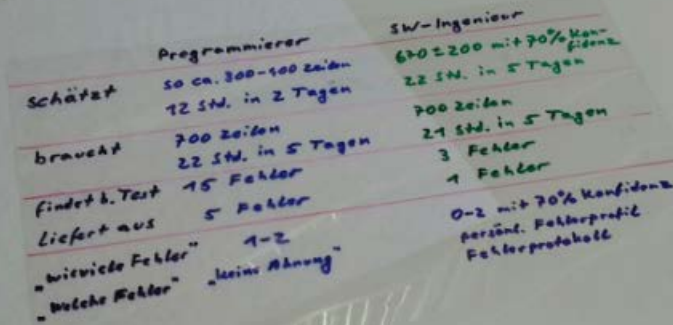 Programmierer SW-Ingenieur
schätzt so ca. 300-400 Zeilen 670±200 mit 70% Konfidenz
12 Std. in 2 Tagen 22 Std. in 5 Tagen
braucht 700 Zeilen 700 Zeilen
22 Std. in 5 Tagen 21 Std. in 5 Tagen
findet b. Test 15 Fehler 3 Fehler
liefert aus 5 Fehler 1 Fehler
"wieviele Fehler" 1-2 0-2 mit 70% Konfidenz
"welche Fehler" "keine Ahnung" persönl. Fehlerprofil
Fehlerprotokoll